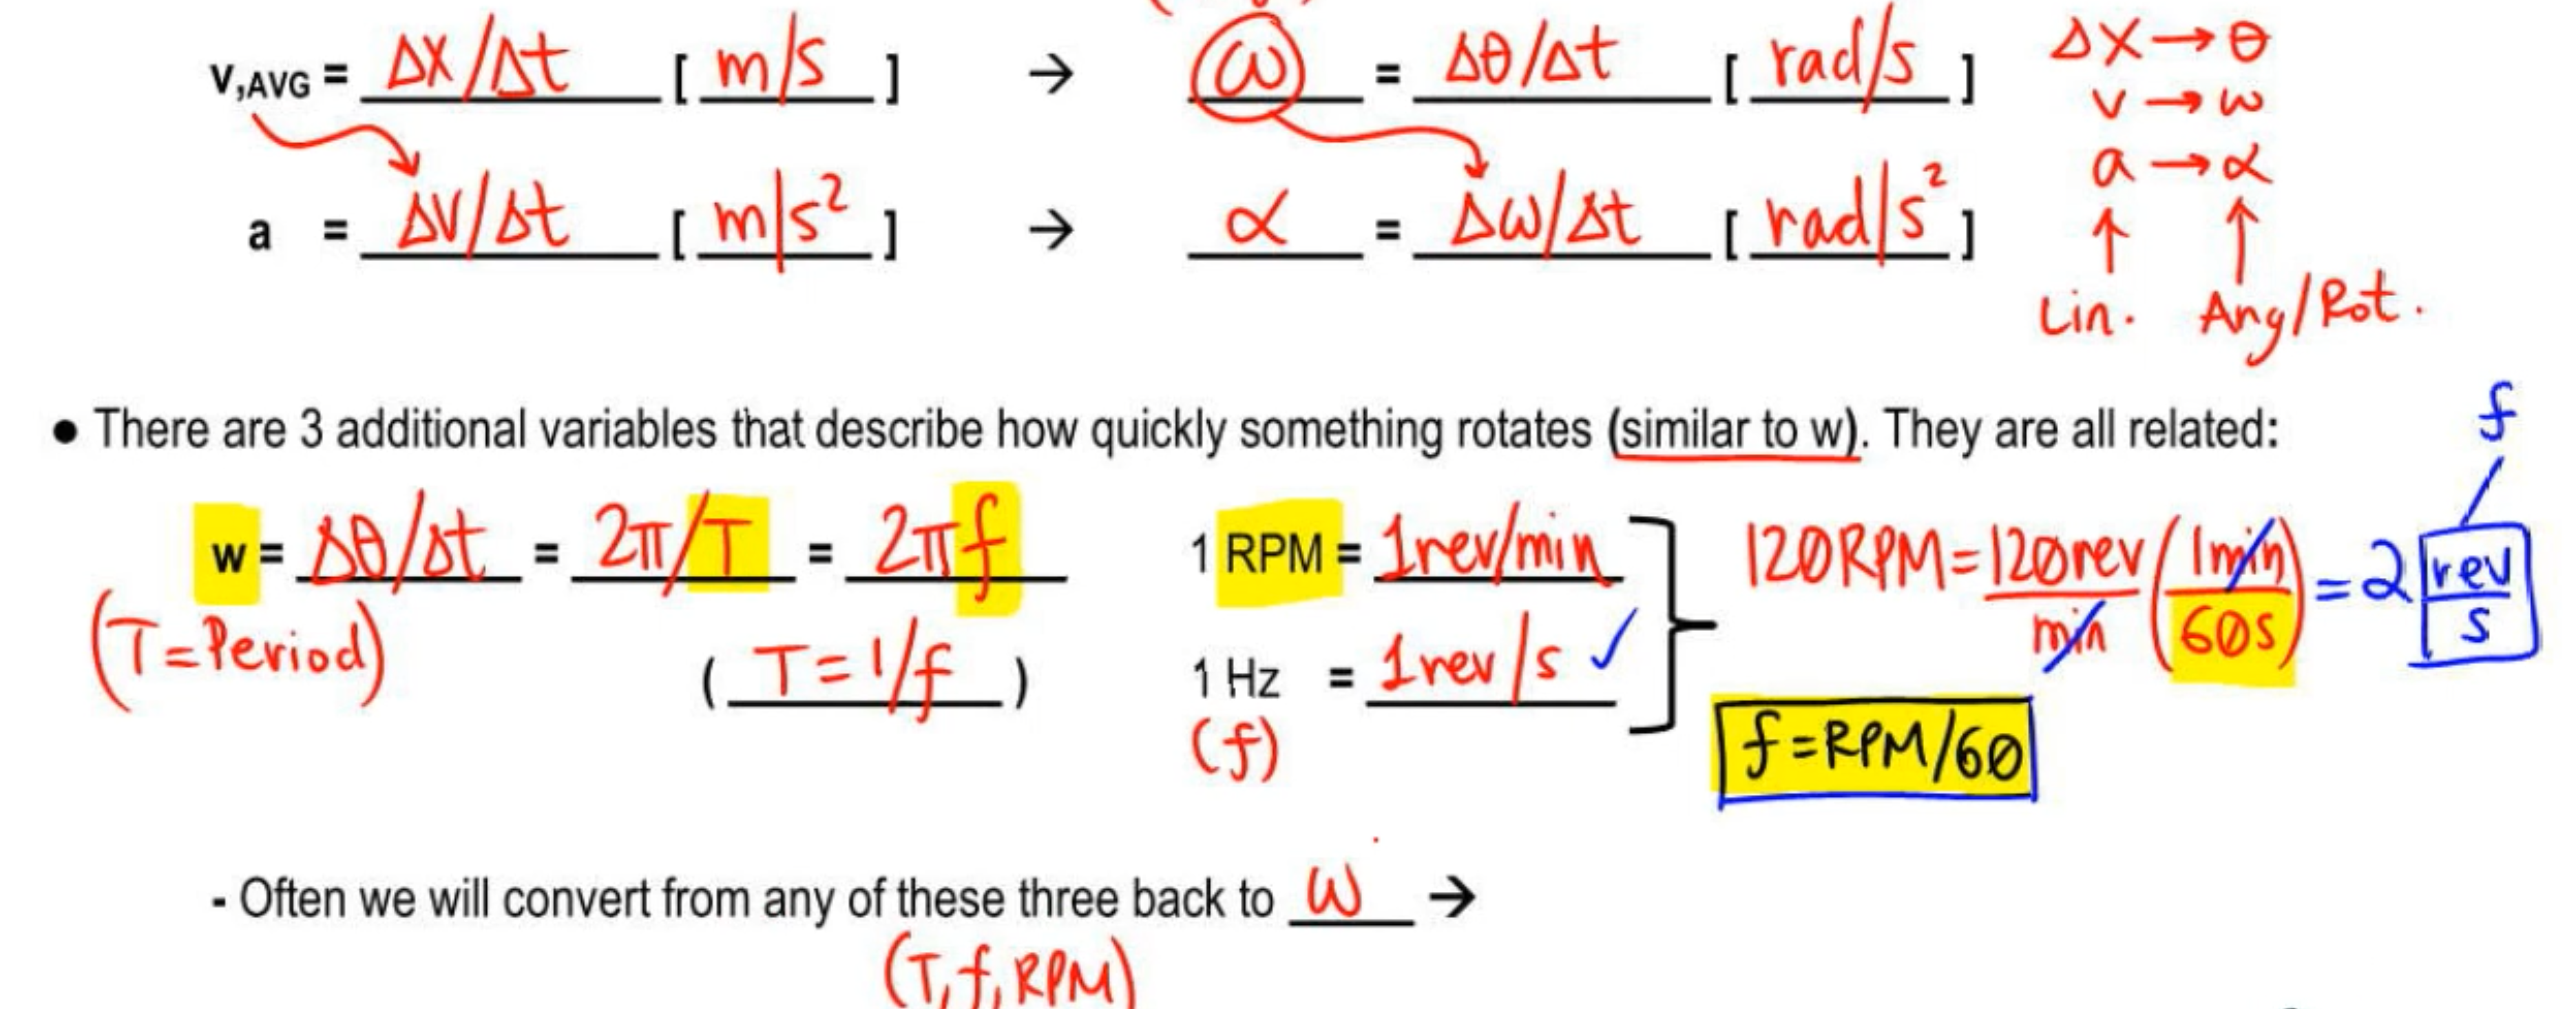 v,AVG = Δx/Δt [ m/s ] → ω = Δθ/Δt [ rad/s ]
Δx → θ
v → ω
a → α
a = Δv/Δt [ m/s² ] → α = Δω/Δt [ rad/s² ]
Lin. Ang/Rot.
● There are 3 additional variables that describe how quickly something rotates (similar to w). They are all related:
f
w = Δθ/Δt = 2π/T = 2πf
(T=Period)
( T=1/f )
1 RPM = 1rev/min
1 Hz = 1rev/s ✓
(f)
120RPM = 120rev/min (1min/60s) = 2 rev/s
f=RPM/60
- Often we will convert from any of these three back to ω →
(T, f, RPM)